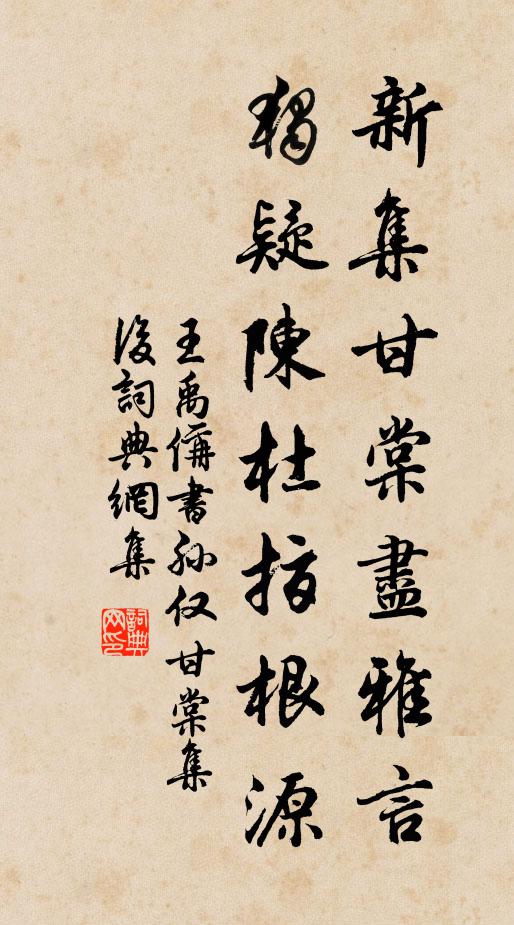 新集甘棠盡雅言
獨疑陳杜指根源
王禹偁書孫仅甘棠集
後詞典網集
詞典网印